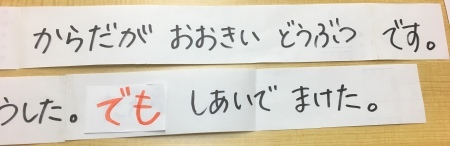 からだが おおきい どうぶつ です。
うした。でも しあいで まけた。